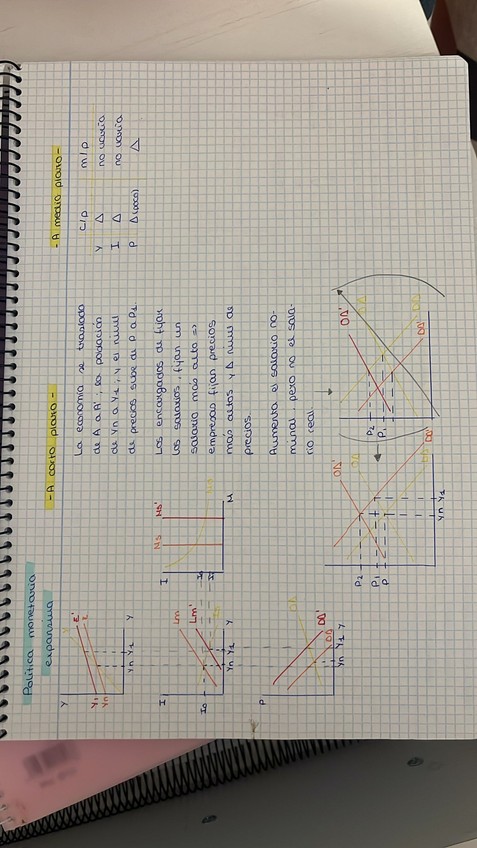 Política monetaria
expansiva
- A corto plazo -
La economía se traslada
de A a A'; la población
de Yn a Y1, y el nivel
de precios sube de P a P1.
Los encargados de fijar
los salarios, fijan un
salario más alto =>
empresas fijan precios
más altos y Δ nivel de
precios.
Aumenta el salario no-
minal, pero no el sala-
rio real
- A medio plazo -
c/p m/p
Y Δ no varía
I Δ no varía
P Δ(poco) Δ
Y
E'
E
Y1
Yn
Yn Y1 Y
I
Lm
Lm'
I0
Yn Y1 Y
P
OA
DA'
DA
Yn Y1 Y
I
Ms Ms'
I0
I1
M
OA'
OA
DA'
DA
P2
P1
P
Yn Y1
OA'
OA
DA
DA'
P2
P1